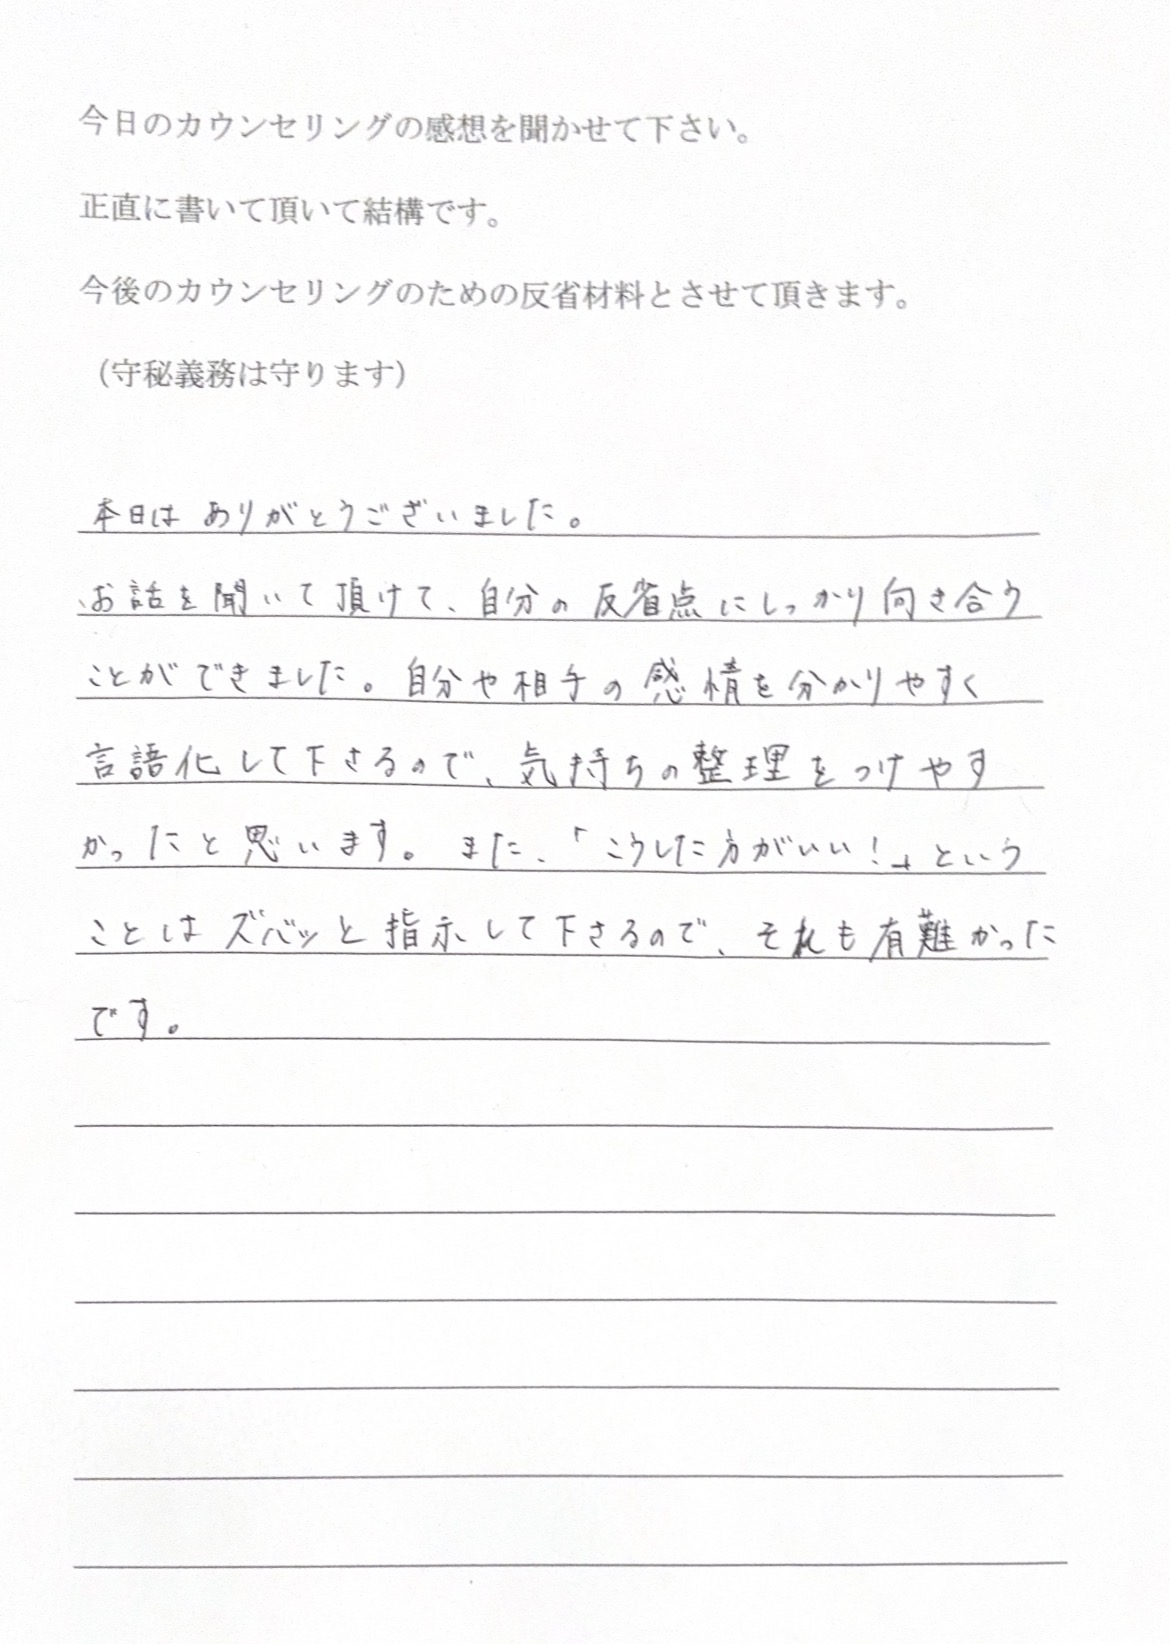 今日のカウンセリングの感想を聞かせて下さい。
正直に書いて頂いて結構です。
今後のカウンセリングのための反省材料とさせて頂きます。
（守秘義務は守ります）
本日はありがとうございました。
お話を聞いて頂けて、自分の反省点にしっかり向き合う
ことができました。自分や相手の感情を分かりやすく
言語化して下さるので、気持ちの整理をつけやす
かったと思います。また、「こうした方がいい！」という
ことはズバッと指示して下さるので、それも有難かった
です。